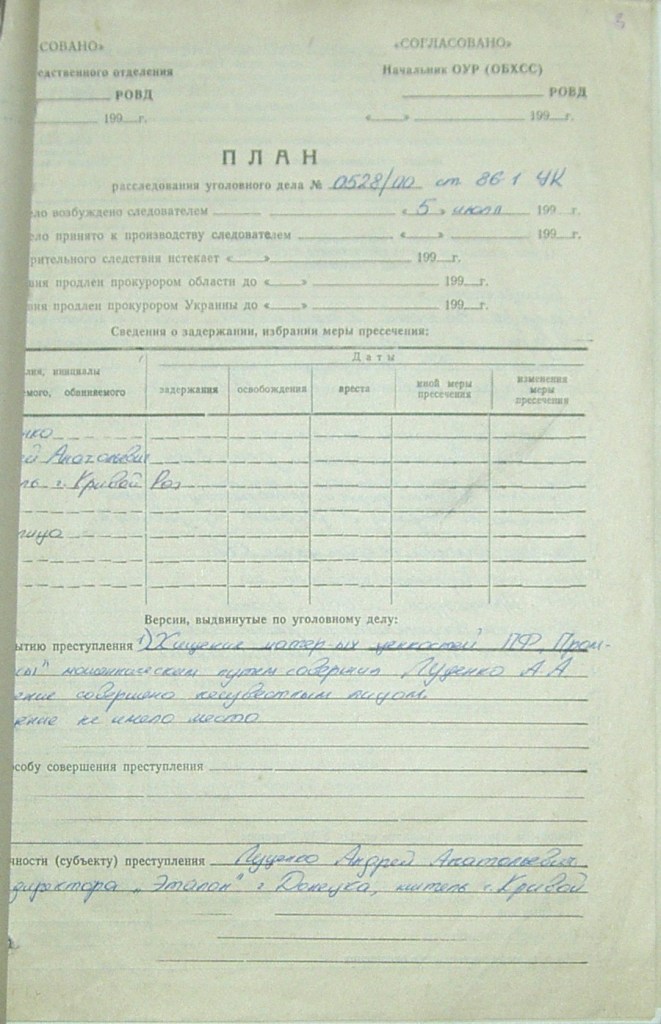 СОВАНО» «СОГЛАСОВАНО»
едственного отделения Начальник ОУР (ОБХСС)
РОВД РОВД
199 г. « » 199 г.
ПЛАН
расследования уголовного дела № 0528/00 ст 86-1 УК
ело возбуждено следователем « 5 » июля 199 г.
ело принято к производству следователем « » 199 г.
рительного следствия истекает « » 199 г.
вия продлен прокурором области до « » 199 г.
вия продлен прокурором Украины до « » 199 г.
Сведения о задержании, избрании меры пресечения:
Даты
лия, инициалы
емого, обвиняемого
задержания освобождения ареста иной меры пресечения изменения меры пресечения
нко
ей Анатольевич
ль г. Кривой Рог
лица
Версии, выдвинутые по уголовному делу:
ытию преступления 1) Хищение матер-ых ценностей ПФ „Пром-
сы" мошенническим путем совершил Луценко А.А
ение совершено неизвестным лицом.
ение не имело место
особу совершения преступления
чности (субъекту) преступления Луценко Андрей Анатольевич
директора „Эталон" г Донецка, житель г. Кривой